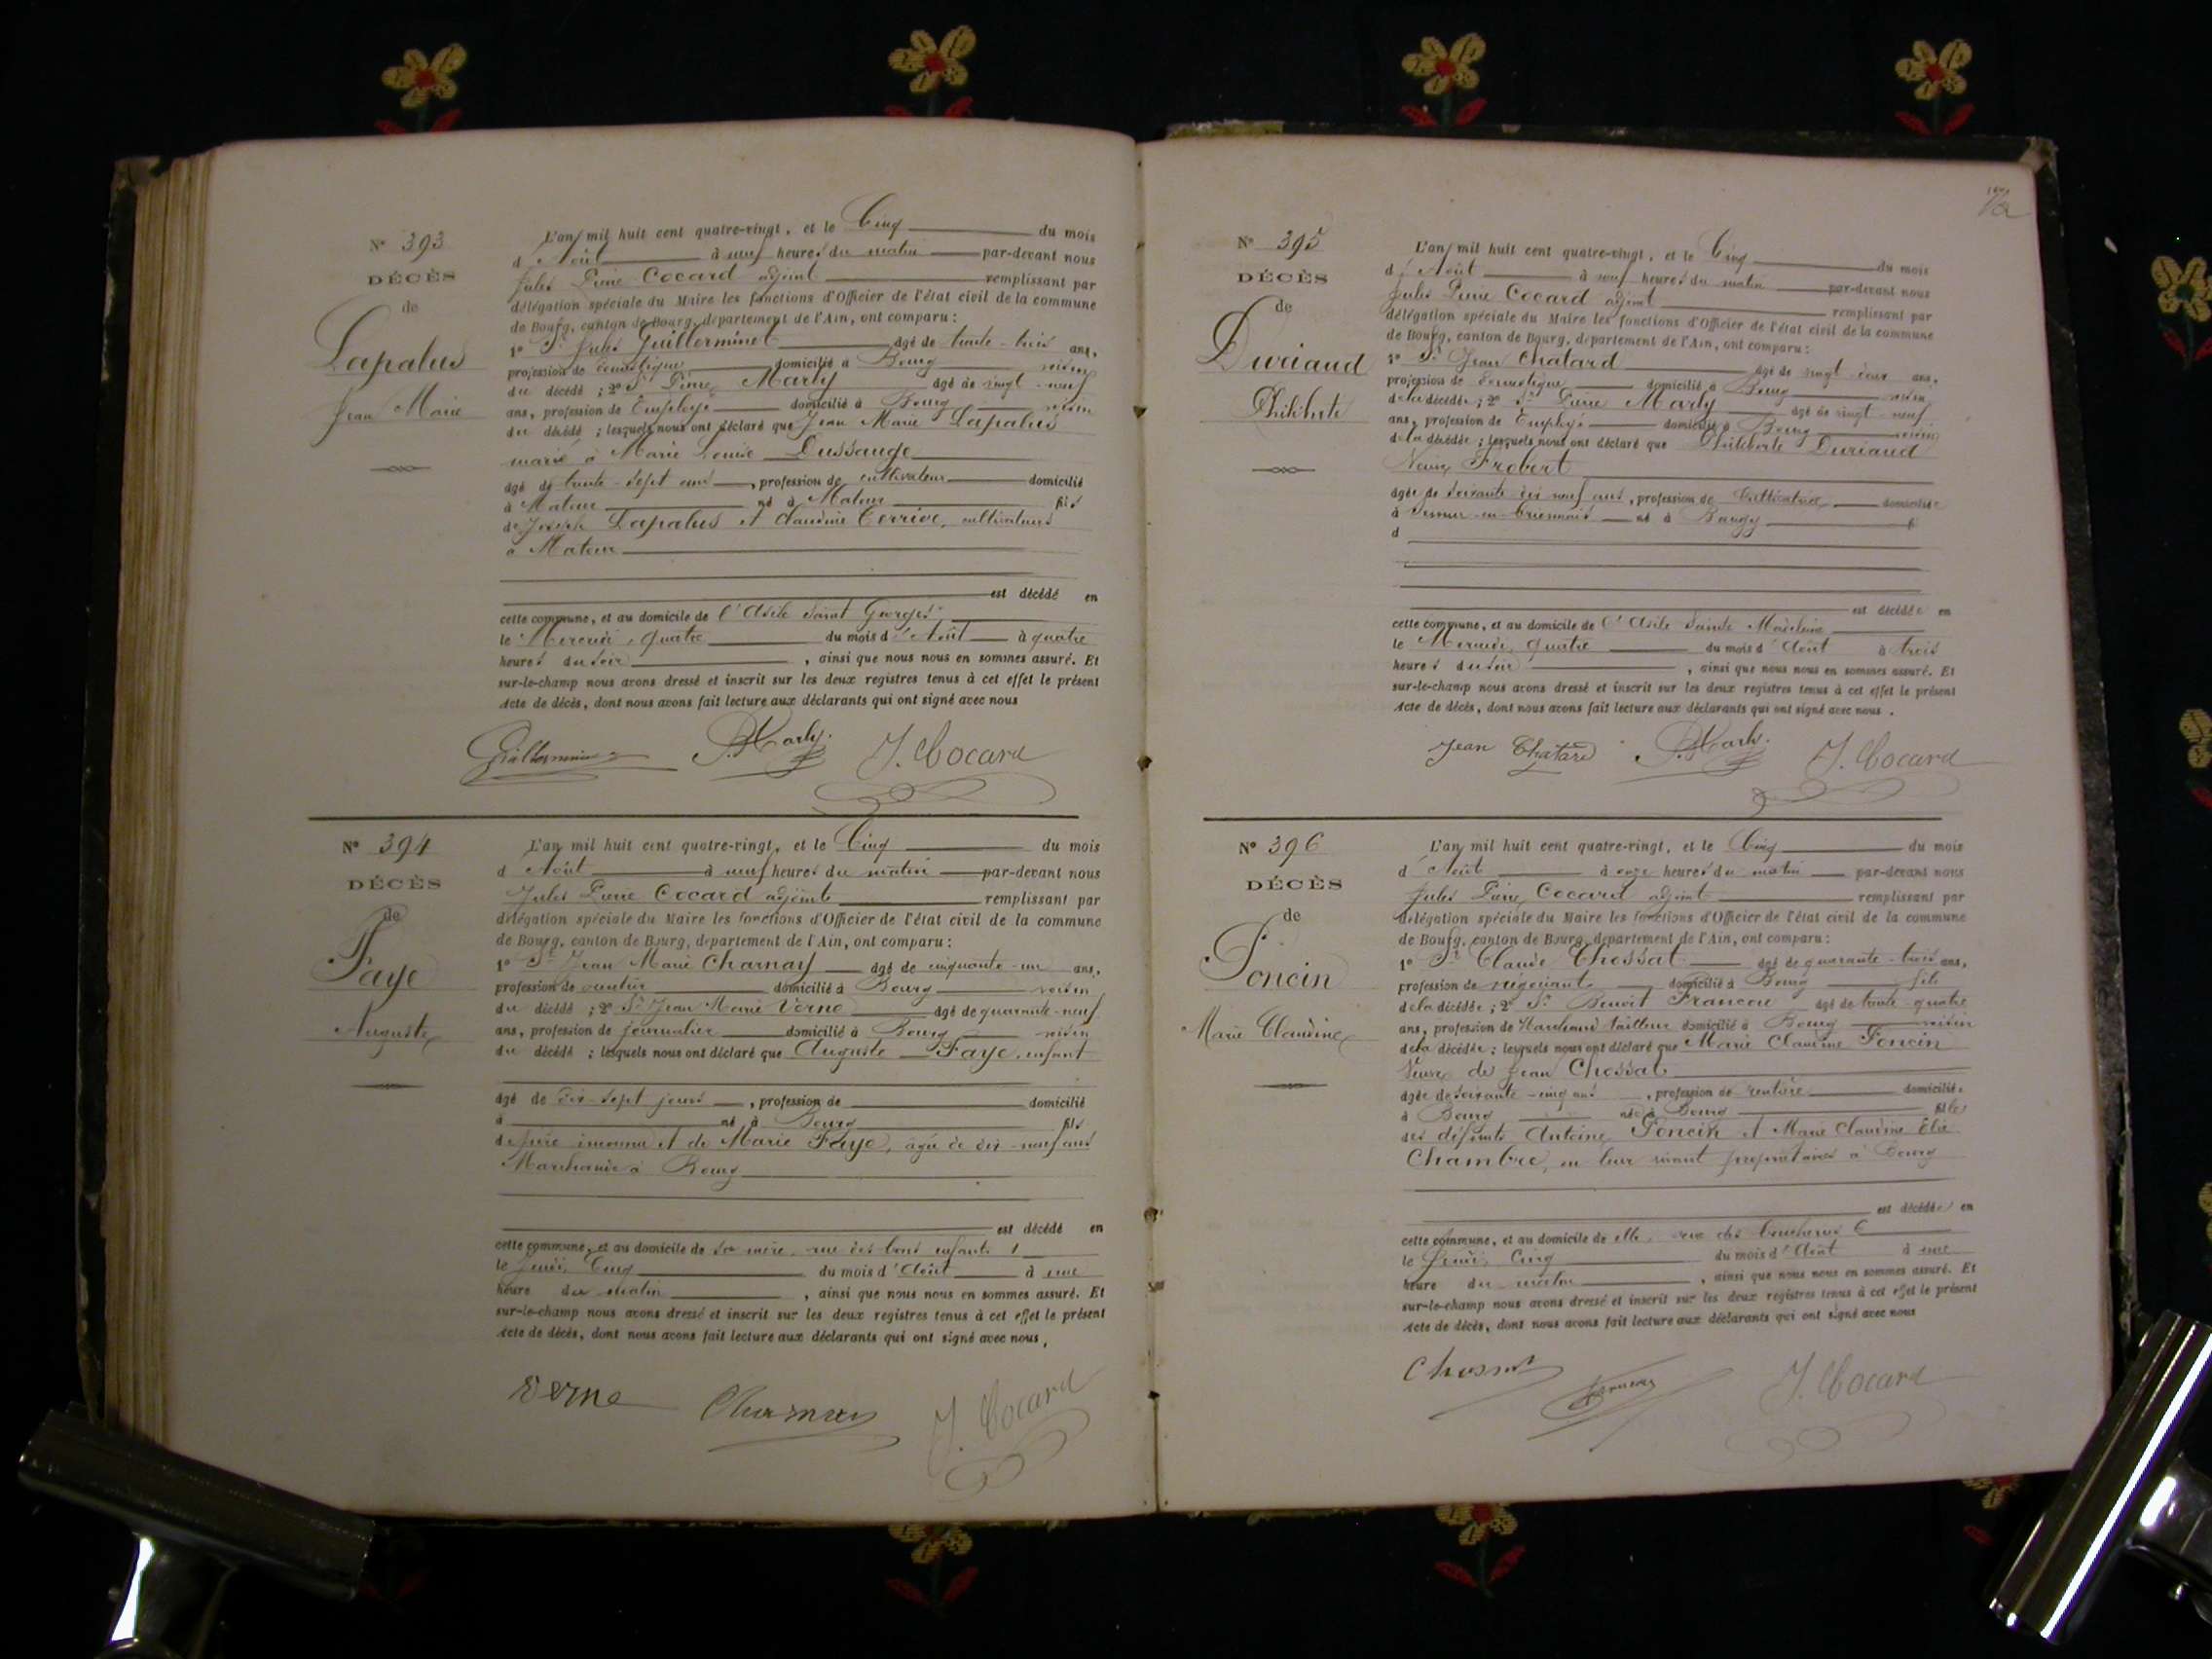 N° 393
DÉCÈS
de
Lapalus
Jean Marie
L'an mil huit cent quatre-vingt, et le Cinq du mois
d'Août à neuf heures du matin par-devant nous
Jules Pierre Cocard adjoint remplissant par
délégation spéciale du Maire les fonctions d'Officier de l'état civil de la commune
de Bourg, canton de Bourg, département de l'Ain, ont comparu :
1° Sr Jules Guillerminet âgé de trente-trois ans,
profession de domestique domicilié à Bourg voisin
du décédé ; 2° Sr Pierre Marly âgé de vingt-neuf
ans, profession de Employé domicilié à Bourg voisin
du décédé ; lesquels nous ont déclaré que Jean Marie Lapalus
marié à Marie Louise Dussauge
âgé de trente-sept ans, profession de cultivateur domicilié
à Matour né à Matour fils
de Joseph Lapalus et Claudine Terrier, cultivateurs
à Matour
est décédé en
cette commune, et au domicile de l'Asile Saint Georges
le Mercredi, quatre du mois d'Août à quatre
heures du soir, ainsi que nous nous en sommes assuré. Et
sur-le-champ nous avons dressé et inscrit sur les deux registres tenus à cet effet le présent
Acte de décès, dont nous avons fait lecture aux déclarants qui ont signé avec nous
Guillerminet P. Marly J. Cocard
N° 394
DÉCÈS
de
Faye
Auguste
L'an mil huit cent quatre-vingt, et le Cinq du mois
d'Août à neuf heures du matin par-devant nous
Jules Pierre Cocard adjoint remplissant par
délégation spéciale du Maire les fonctions d'Officier de l'état civil de la commune
de Bourg, canton de Bourg, département de l'Ain, ont comparu :
1° Sr Jean Marie Charnay âgé de cinquante-un ans,
profession de domicilié à Bourg voisin
du décédé ; 2° Sr Jean Marie Verne âgé de quarante-neuf
ans, profession de journalier domicilié à Bourg voisin
du décédé ; lesquels nous ont déclaré que Auguste Faye, enfant
âgé de dix-sept jours, profession de domicilié
à né à Bourg fils
de père inconnu et de Marie Faye, âgée de dix-neuf ans
Marchande à Bourg
est décédé en
cette commune, et au domicile de sa mère, rue des bons enfants 1
le Jeudi, Cinq du mois d'Août à une
heure du matin, ainsi que nous nous en sommes assuré. Et
sur-le-champ nous avons dressé et inscrit sur les deux registres tenus à cet effet le présent
Acte de décès, dont nous avons fait lecture aux déclarants qui ont signé avec nous,
Verne Charnay J. Cocard
N° 395
DÉCÈS
de
Duriaud
Philiberte
L'an mil huit cent quatre-vingt, et le Cinq du mois
d'Août à neuf heures du matin par-devant nous
Jules Pierre Cocard adjoint remplissant par
délégation spéciale du Maire les fonctions d'Officier de l'état civil de la commune
de Bourg, canton de Bourg, département de l'Ain, ont comparu :
1° Sr Jean Chatard âgé de vingt-deux ans,
profession de domestique domicilié à Bourg voisin
de la décédée ; 2° Sr Pierre Marly âgé de vingt-neuf
ans, profession de Employé domicilié à Bourg voisin
de la décédée ; lesquels nous ont déclaré que Philiberte Duriaud
Veuve Frobert
âgée de soixante-dix neuf ans, profession de Cultivatrice domiciliée
à Semur-en-brionnais né à Baugy f
d
est décédée en
cette commune, et au domicile de l'Asile Sainte Madeleine
le Mercredi, quatre du mois d'Août à trois
heures du soir, ainsi que nous nous en sommes assuré. Et
sur-le-champ nous avons dressé et inscrit sur les deux registres tenus à cet effet le présent
Acte de décès, dont nous avons fait lecture aux déclarants qui ont signé avec nous.
Jean Chatard P. Marly J. Cocard
N° 396
DÉCÈS
de
Poncin
Marie Claudine
L'an mil huit cent quatre-vingt, et le Cinq du mois
d'Août à onze heures du matin par-devant nous
Jules Pierre Cocard adjoint remplissant par
délégation spéciale du Maire les fonctions d'Officier de l'état civil de la commune
de Bourg, canton de Bourg, département de l'Ain, ont comparu :
1° Sr Claude Chossat âgé de quarante-trois ans,
profession de négociant domicilié à Bourg fils
de la décédée ; 2° Sr Benoît Francon âgé de trente-quatre
ans, profession de Marchand tailleur domicilié à Bourg voisin
de la décédée ; lesquels nous ont déclaré que Marie Claudine Poncin
Veuve de Jean Chossat
âgée de soixante-cinq ans, profession de rentière domiciliée
à Bourg née à Bourg fille
des défunts Antoine Poncin et Marie Claudine Elie
Chambre, en leur vivant propriétaires à Bourg
est décédée en
cette commune, et au domicile de elle, rue des 6
le Jeudi, Cinq du mois d'Août à une
heure du matin, ainsi que nous nous en sommes assuré. Et
sur-le-champ nous avons dressé et inscrit sur les deux registres tenus à cet effet le présent
Acte de décès, dont nous avons fait lecture aux déclarants qui ont signé avec nous
Chossat J. Cocard